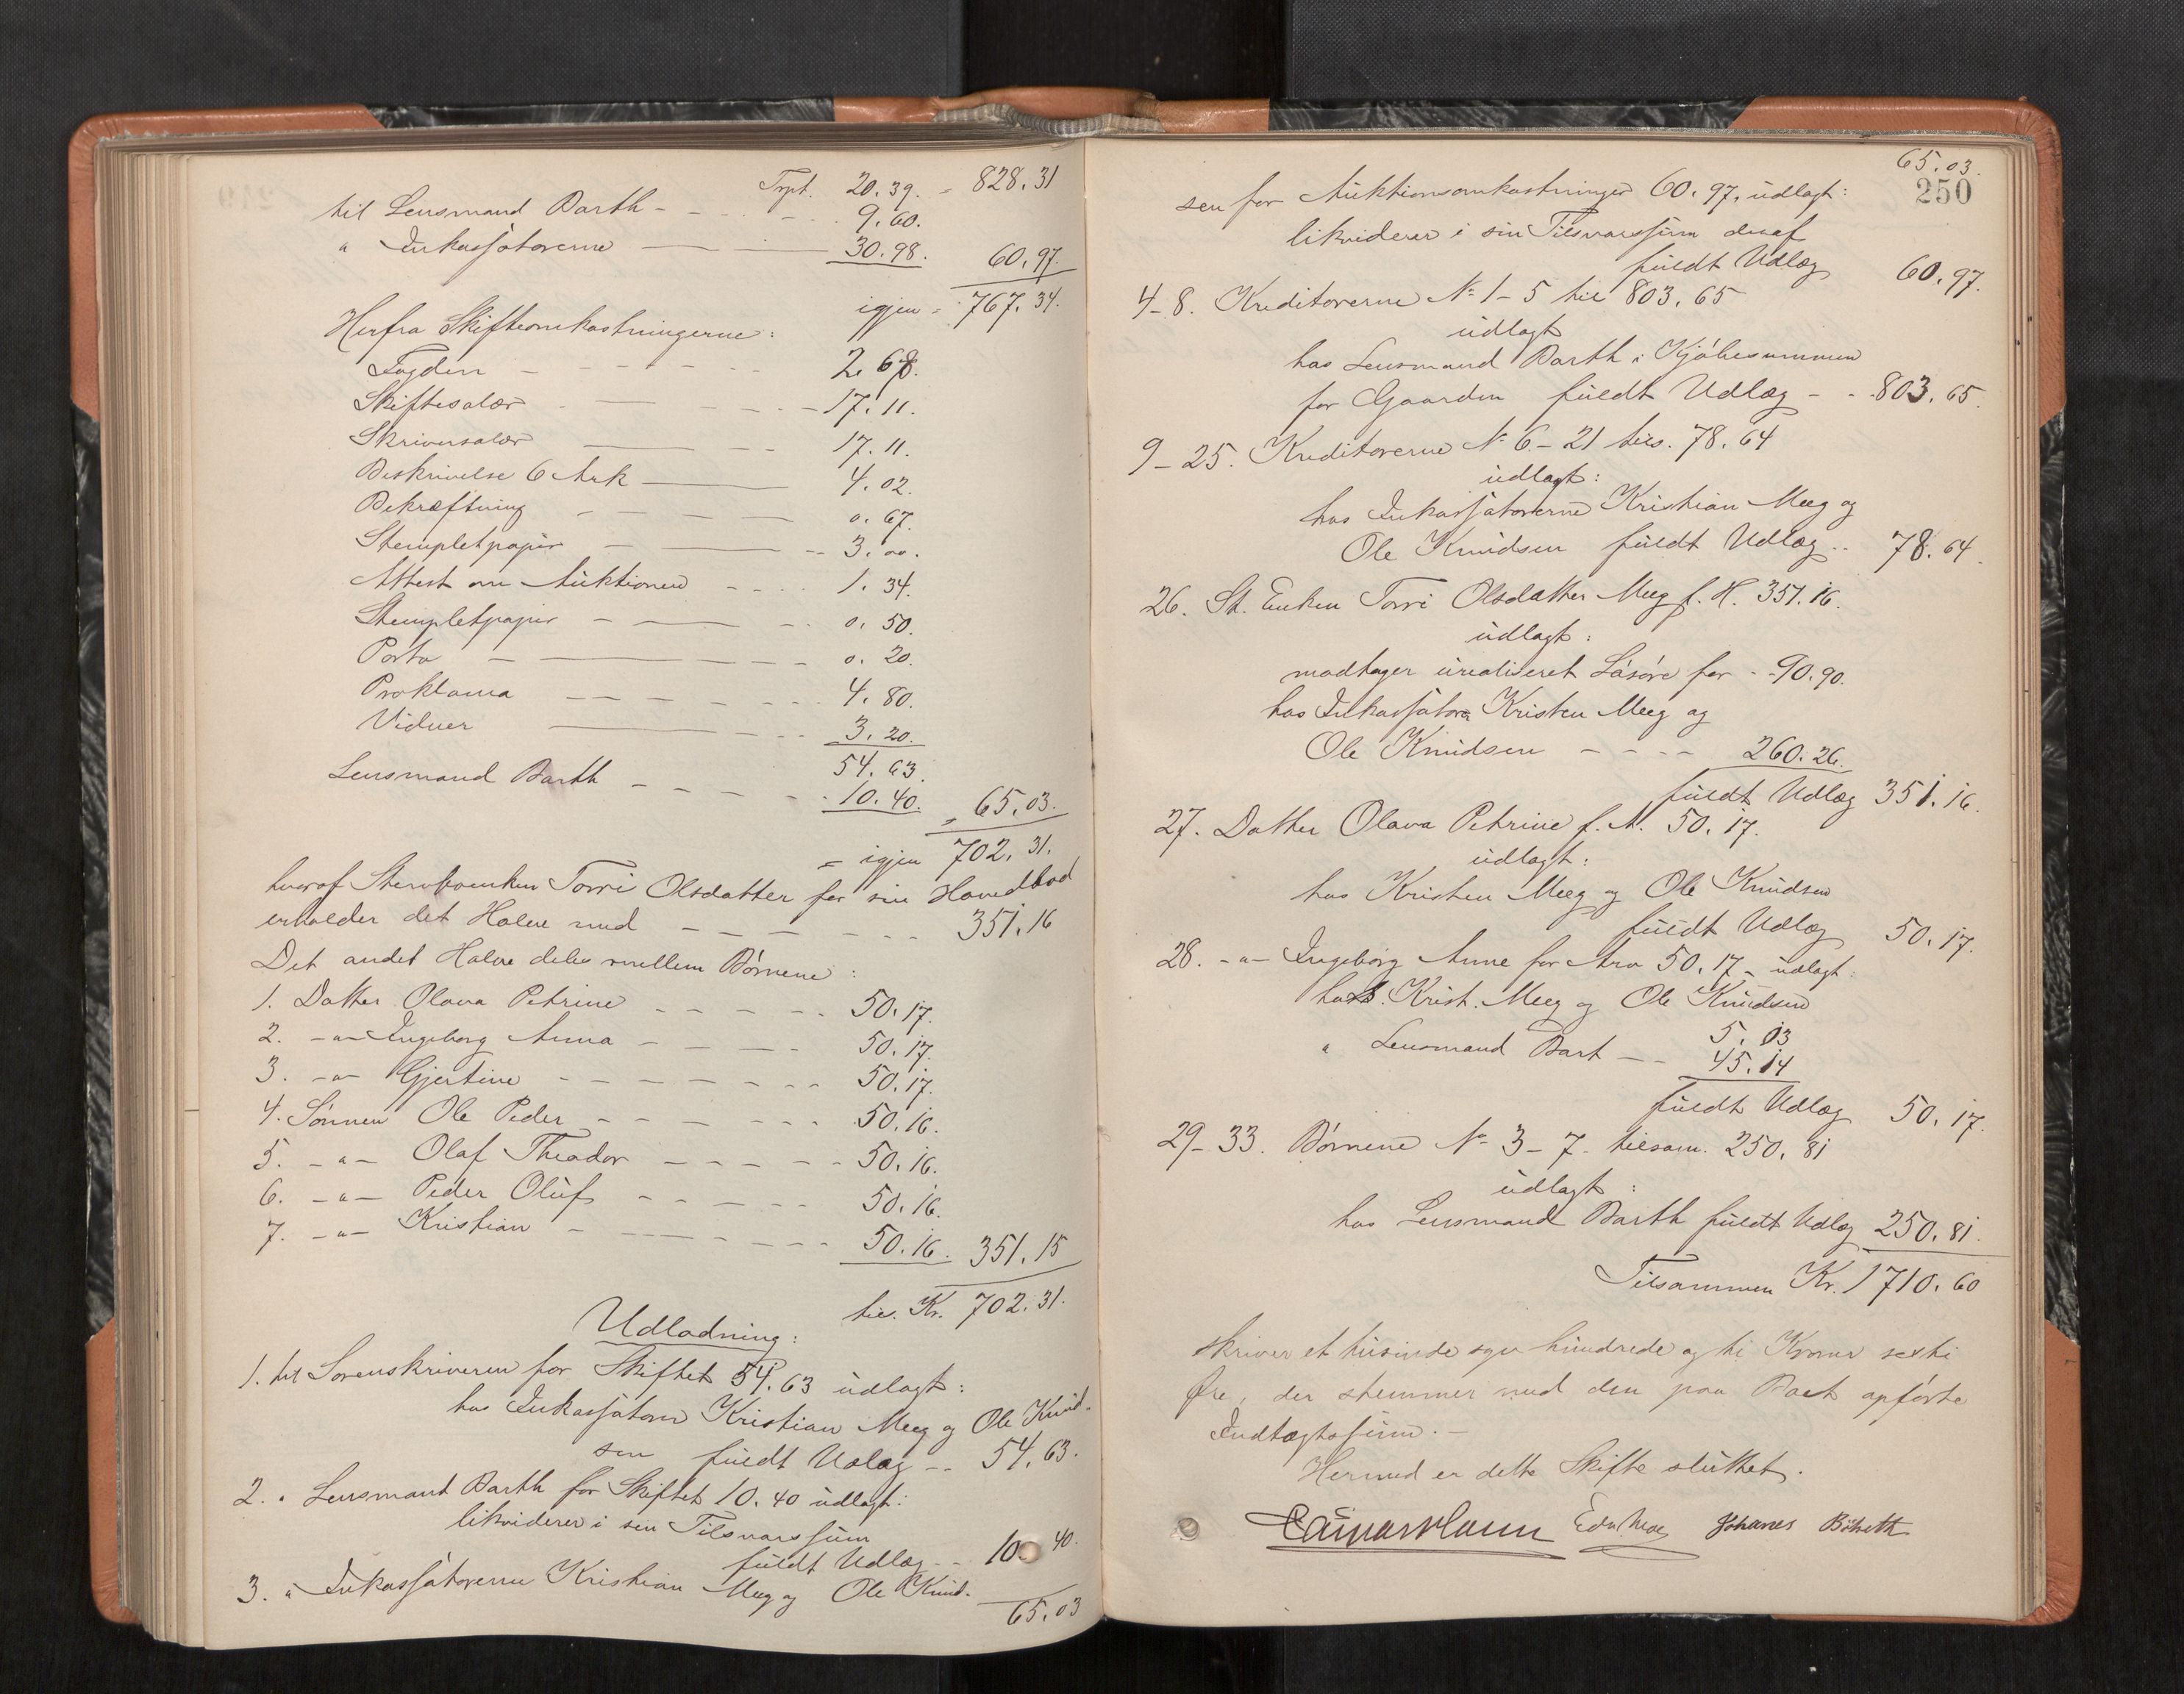 Trpt. 20.39. - 828.31
til Lensmand Barth - - - - 9.60.
" Inkassatorerne — — 30.98. 60.97.
igjen - 767.34.
Herfra Skifteomkostningerne:
Fogden - - - - - - 2.68.
Skiftesalær - — - - - 17.11.
Skriversalær — - - 17.11.
Beskrivelse 6 Ark — 4.02.
Bekræftning - - - — 0.67.
Stempletpapir - — - - 3.00.
Attest om Auktionen - - - - 1.34.
Stempletpapir - — - - 0.50.
Porto - — - - - 0.20.
Proklama - - - - - - - 4.80.
Vidner — - - - 3.20.
54.63.
Lensmand Barth - - - - - 10.40. 65.03.
= igjen 702.31.
hvoraf Stervboenken Torri Olsdatter for sin Hovedlod
erholder det Halve med - - - - - - - 351.16
Det andet Halve deles mellem Børnene:
1. Datter Olava Petrine - - - - - 50.17.
2. -"- Ingeborg Anna - - - - 50.17.
3. -"- Gjertine - - - - - - - - 50.17.
4. Sønnen Ole Peder - - - - - - 50.16.
5. -"- Olaf Theodor - - - - - 50.16.
6. -"- Peder Oluf - - - - - 50.16.
7. -"- Kristian - - - - - - - - 50.16. 351.15
tils. Kr. 702.31.
Udlodning:
1. til Sorenskriveren for Skiftet 54.63 udlagt:
hos Inkassatorne Kristian Meeg og Ole Knud-
sen fuldt Udlæg - - 54.63.
2. " Lensmand Barth for Skiftet 10.40 udlagt:
likviderer i sin Tilsvarssum
fuldt Udlæg - - 10.40.
3. " Inkassatorerne Kristian Meeg og Ole Knud-
65.03
65.03.
250
sen for Auktionsomkostninger 60.97, udlagt:
likviderer i sin Tilsvarssum deraf
fuldt Udlæg 60.97.
4-8. Kreditorerne No 1-5 tils 803.65
udlagt
hos Lensmand Barth i Kjøbesummen
for Gaarden fuldt Udlæg - - 803.65.
9-25. Kreditorerne No 6-21 tils. 78.64
udlagt:
hos Inkassatorerne Kristian Meeg og
Ole Knudsen fuldt Udlæg .. 78.64.
26. St. Enken Torri Olsdatter Meeg f. H. 351.16.
udlagt:
modtager urealiseret Løsøre for - - 90.90.
hos Inkassatorne Kristen Meeg og
Ole Knudsen - - - - 260.26.
fuldt Udlæg 351.16.
27. Datter Olava Petrine f. A. 50.17.
udlagt:
hos Kristen Meeg og Ole Knudsen
fuldt Udlæg 50.17.
28. -"- Ingeborg Anne for Arv 50.17 - udlagt:
hos Krist. Meeg og Ole Knudsen
5.03
" Lensmand Bart - - 45.14
fuldt Udlæg 50.17.
29-33. Børnene No 3-7. tilsam. 250.81
udlagt:
hos Lensmand Barth fuldt Udlæg 250.81.
Tilsammen Kr. 1710.60
skriver et tusinde syv hundrede og ti Kroner sexti
Øre, der stemmer med den paa Boet opførte
Indtægtssum. -
Hermed er dette Skifte sluttet.
Johanes